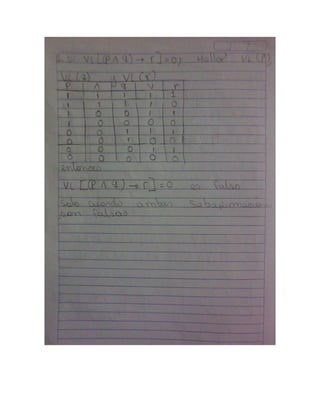 Si VL[(P ∧ q) → r] = 0, Hallar VL(P)
VL(q) y VL(r)
P ∧ q V r
1 1 1 1 1
1 1 1 1 0
1 0 0 1 1
1 0 0 0 0
0 0 1 1
0 0 1 0 0
0 0 0 1 1
0 0 0 0 0
entonces
VL [(P ∧ q) → r] = 0 es falso
solo cuando ambas
son falsas